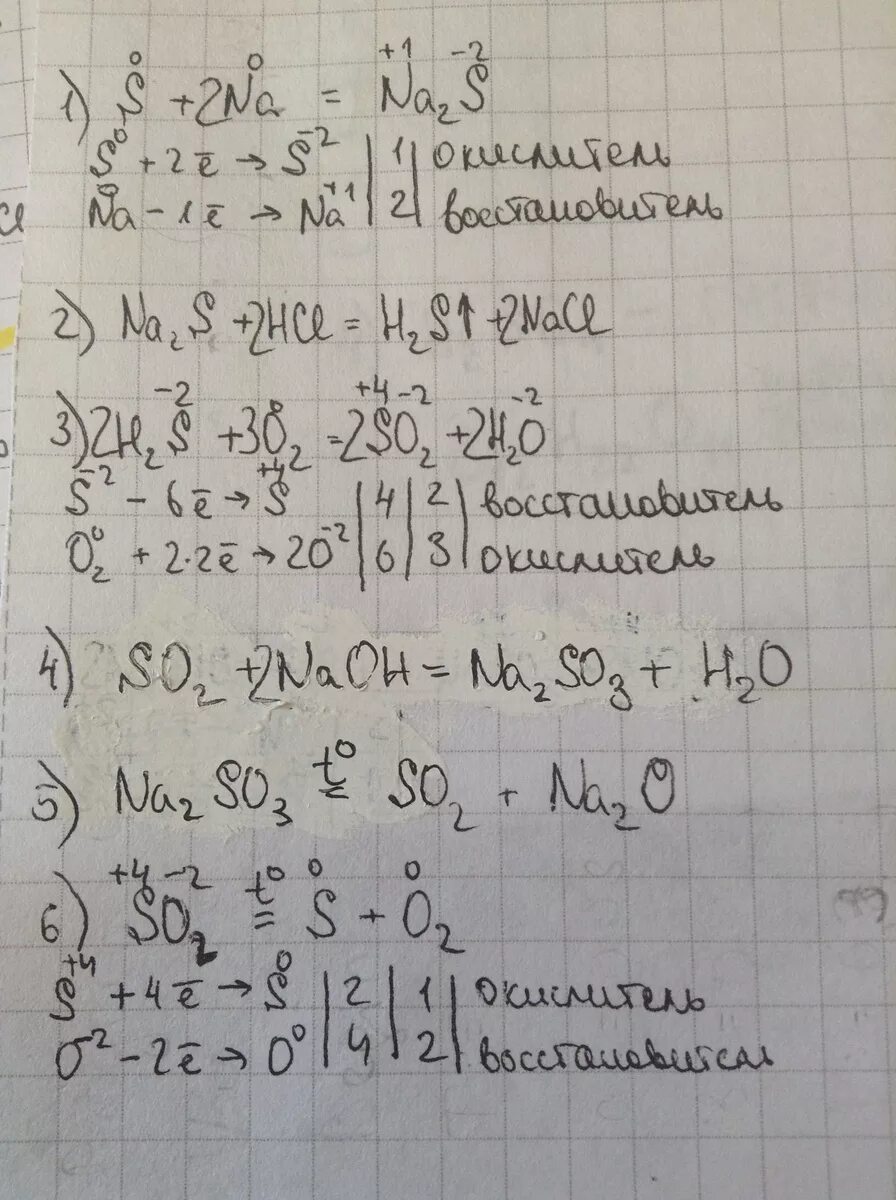 1) S⁰ + 2Na⁰ = Na₂⁺¹S⁻²
S⁰ + 2ē → S⁻² | 1 | окислитель
Na⁰ - 1ē → Na⁺¹ | 2 | восстановитель
2) Na₂S + 2HCl = H₂S↑ + 2NaCl
3) 2H₂S⁻² + 3O₂⁰ = 2S⁺⁴O₂⁻² + 2H₂O⁻²
S⁻² - 6ē → S⁺⁴ | 4 | 2 | восстановитель
O₂⁰ + 2·2ē → 2O⁻² | 6 | 3 | окислитель
4) SO₂ + 2NaOH = Na₂SO₃ + H₂O
5) Na₂SO₃ t⁰= SO₂ + Na₂O
6) S⁺⁴O₂⁻² t⁰= S⁰ + O₂⁰
S⁺⁴ + 4ē → S⁰ | 2 | 1 | окислитель
O⁻² - 2ē → O⁰ | 4 | 2 | восстановитель